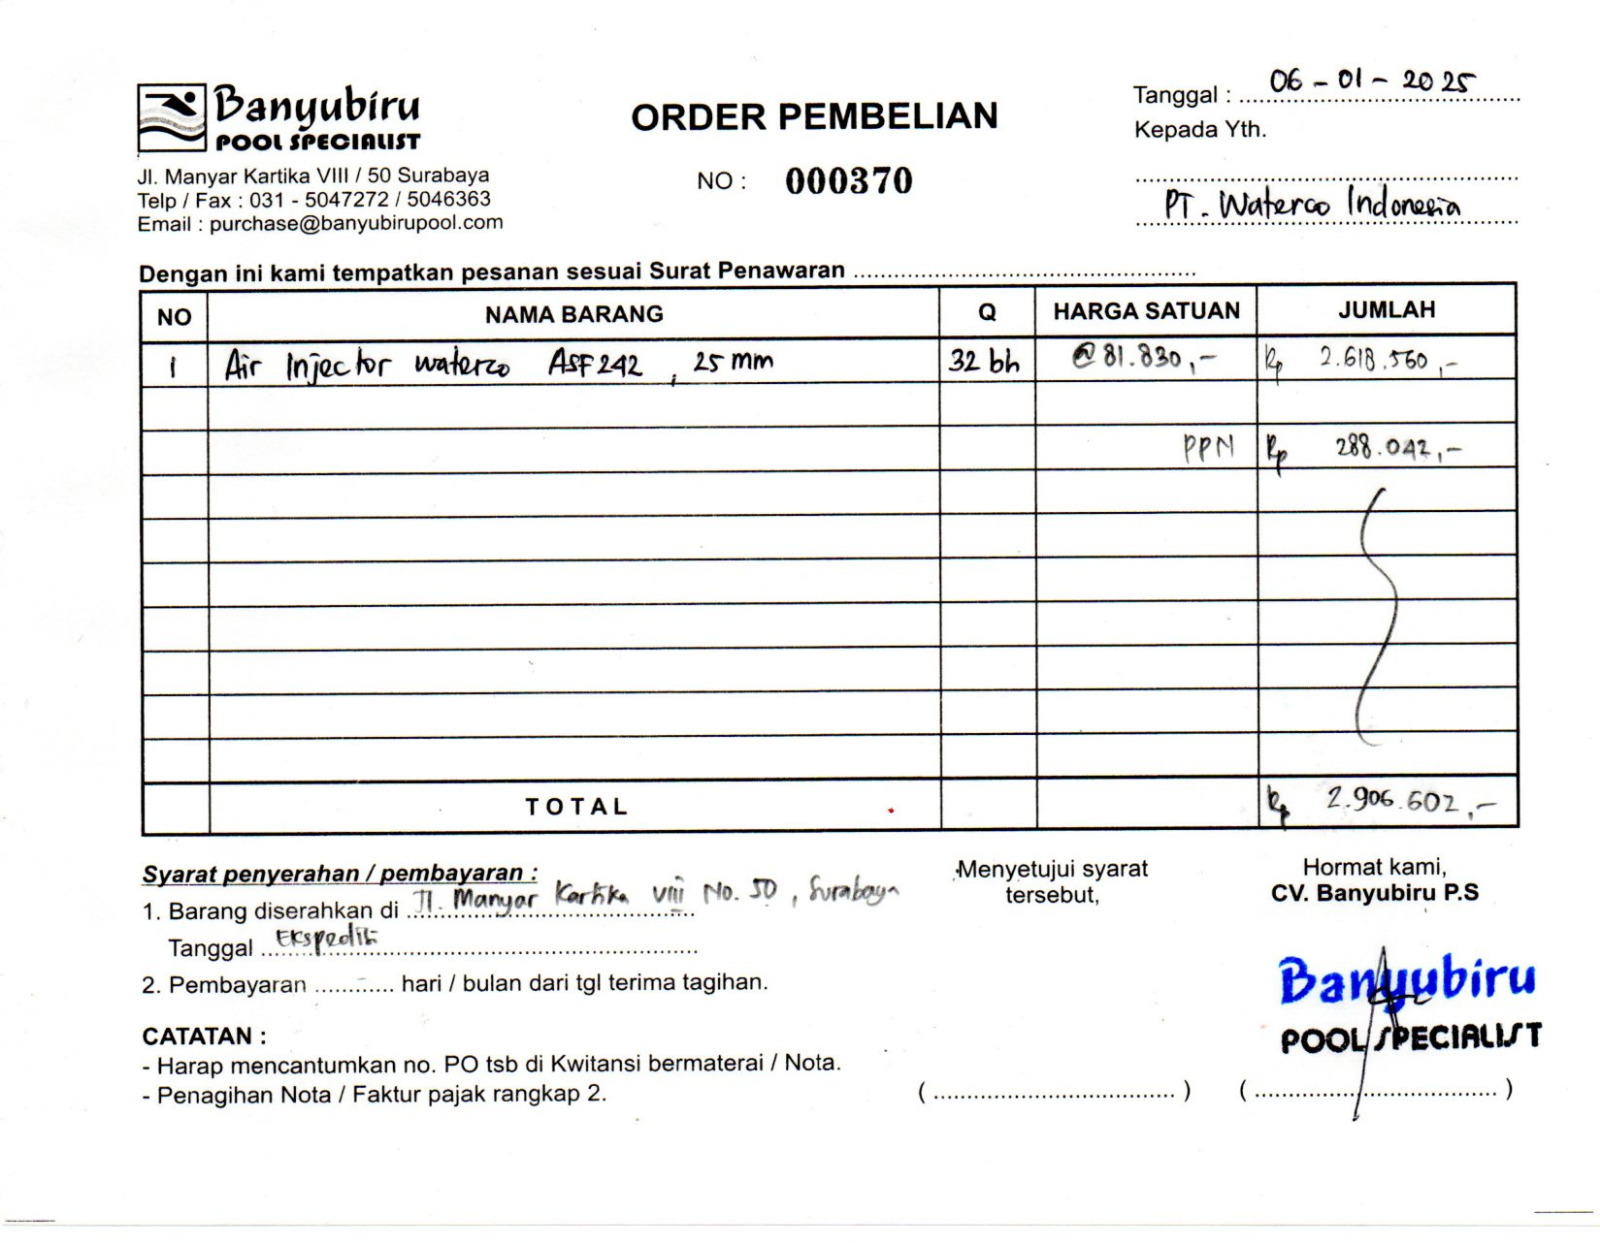 Banyubiru
POOL SPECIALIST
Jl. Manyar Kartika VIII / 50 Surabaya
Telp / Fax : 031 - 5047272 / 5046363
Email : purchase@banyubirupool.com
ORDER PEMBELIAN
NO : 000370
Tanggal : 06 - 01 - 2025
Kepada Yth.
PT. Waterco Indonesia
Dengan ini kami tempatkan pesanan sesuai Surat Penawaran ..........
NO NAMA BARANG Q HARGA SATUAN JUMLAH
1 Air Injector waterco ASF242 , 25 mm 32 bh @ 81.830,- Rp 2.618.560,-
PPN Rp 288.042,-
TOTAL Rp 2.906.602,-
Syarat penyerahan / pembayaran :
1. Barang diserahkan di Jl. Manyar Kartika VIII No. 50 , Surabaya
Tanggal Ekspedisi
2. Pembayaran .....-..... hari / bulan dari tgl terima tagihan.
CATATAN :
- Harap mencantumkan no. PO tsb di Kwitansi bermaterai / Nota.
- Penagihan Nota / Faktur pajak rangkap 2.
Menyetujui syarat
tersebut,
( .......... )
Hormat kami,
CV. Banyubiru P.S
Banyubiru
POOL SPECIALIST
( .......... )